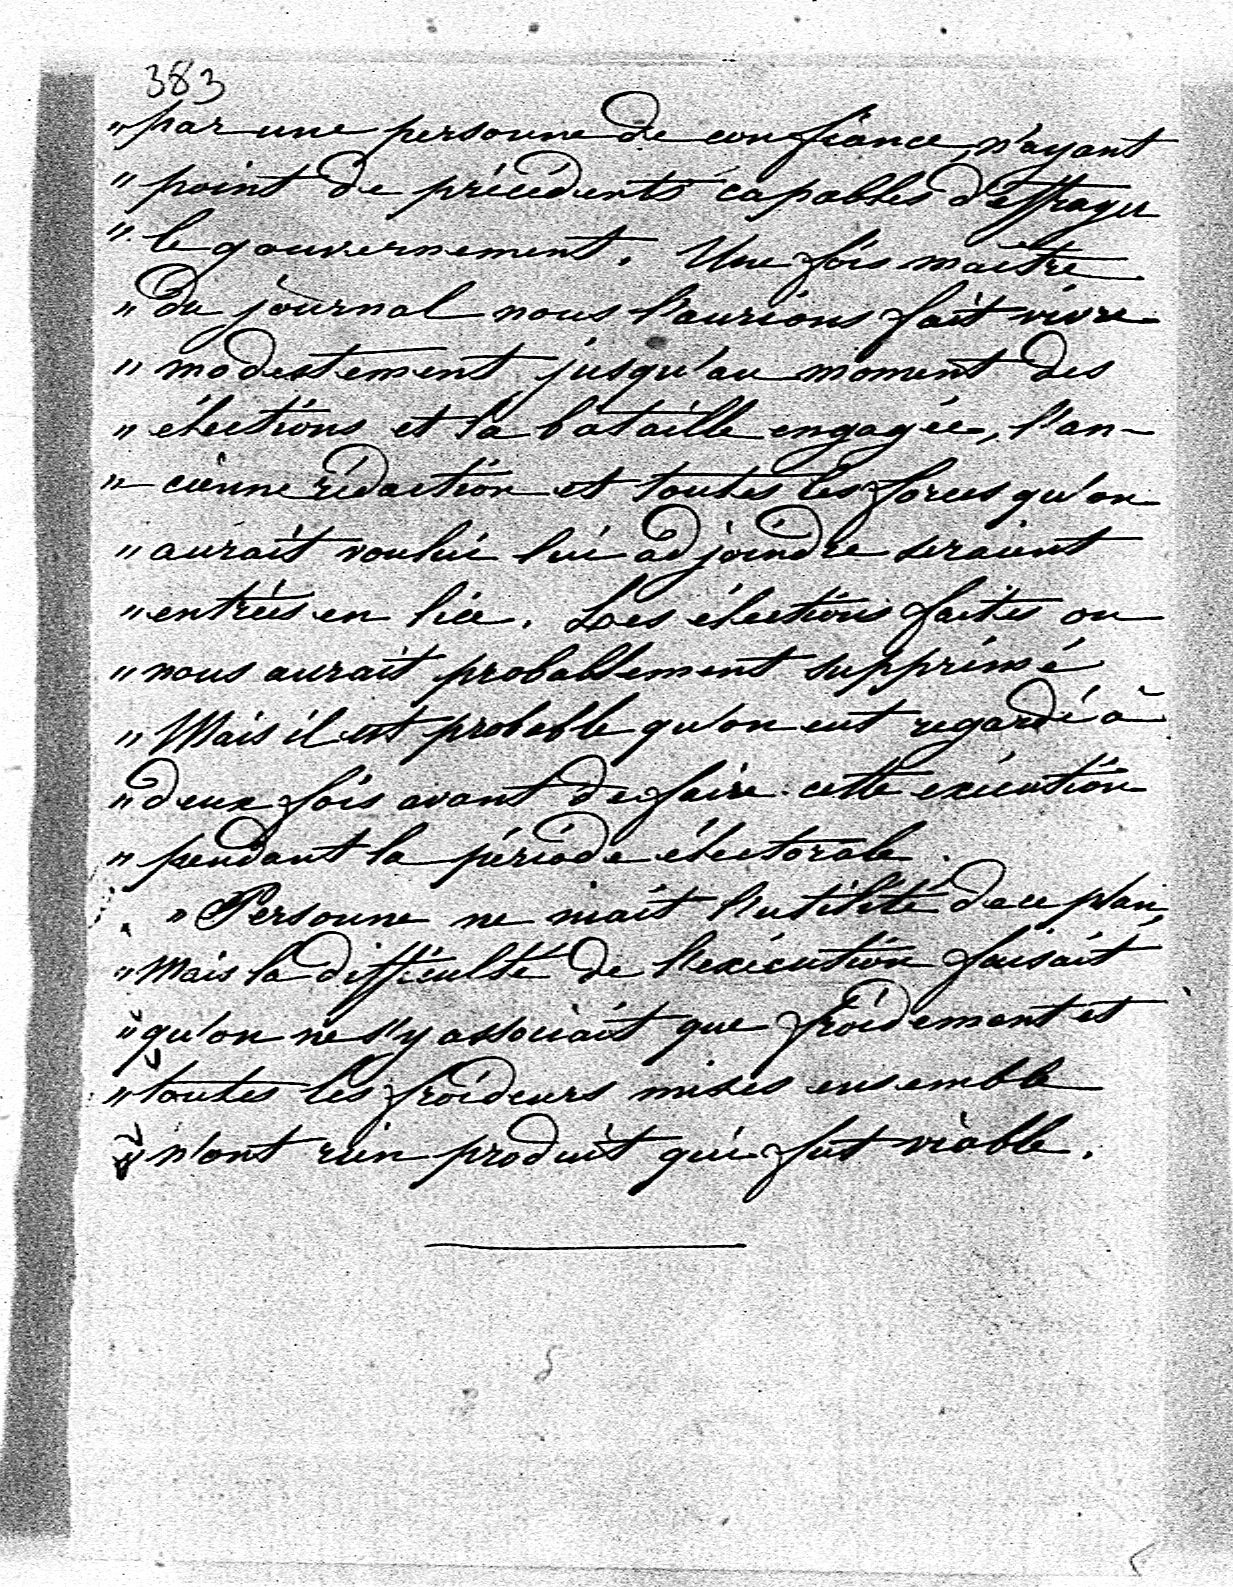 383
" par une personne de confiance, n'ayant
" point de précédents capables d'effrayer
" le gouvernement. Une fois maître
" du journal nous l'aurions fait vivre
" modestement jusqu'au moment des
" élections et la bataille engagée, l'an-
" cienne rédaction et toutes les forces qu'on
" aurait voulu lui adjoindre seraient
" entrées en lice. Les élections faites on
" nous aurait probablement supprimé
" Mais il est probable qu'on eut regardé à
" deux fois avant de faire cette exécution
" pendant la période électorale.
" Personne ne niait l'utilité de ce plan,
" Mais la difficulté de l'exécution faisait
" qu'on ne s'y associait que froidement et
" toutes les froideurs mises ensemble
" n'ont rien produit qui fut viable.